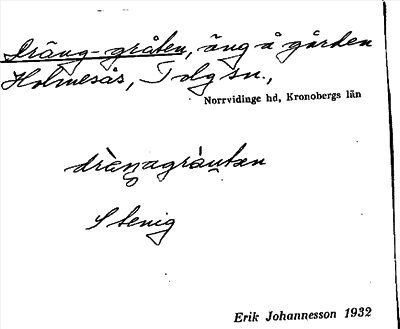 Dräng-gråten, äng å gården
Holmesås, Tolg sn.,
Norrvidinge hd, Kronobergs län
dränagråutæn
Stenig
Erik Johannesson 1932